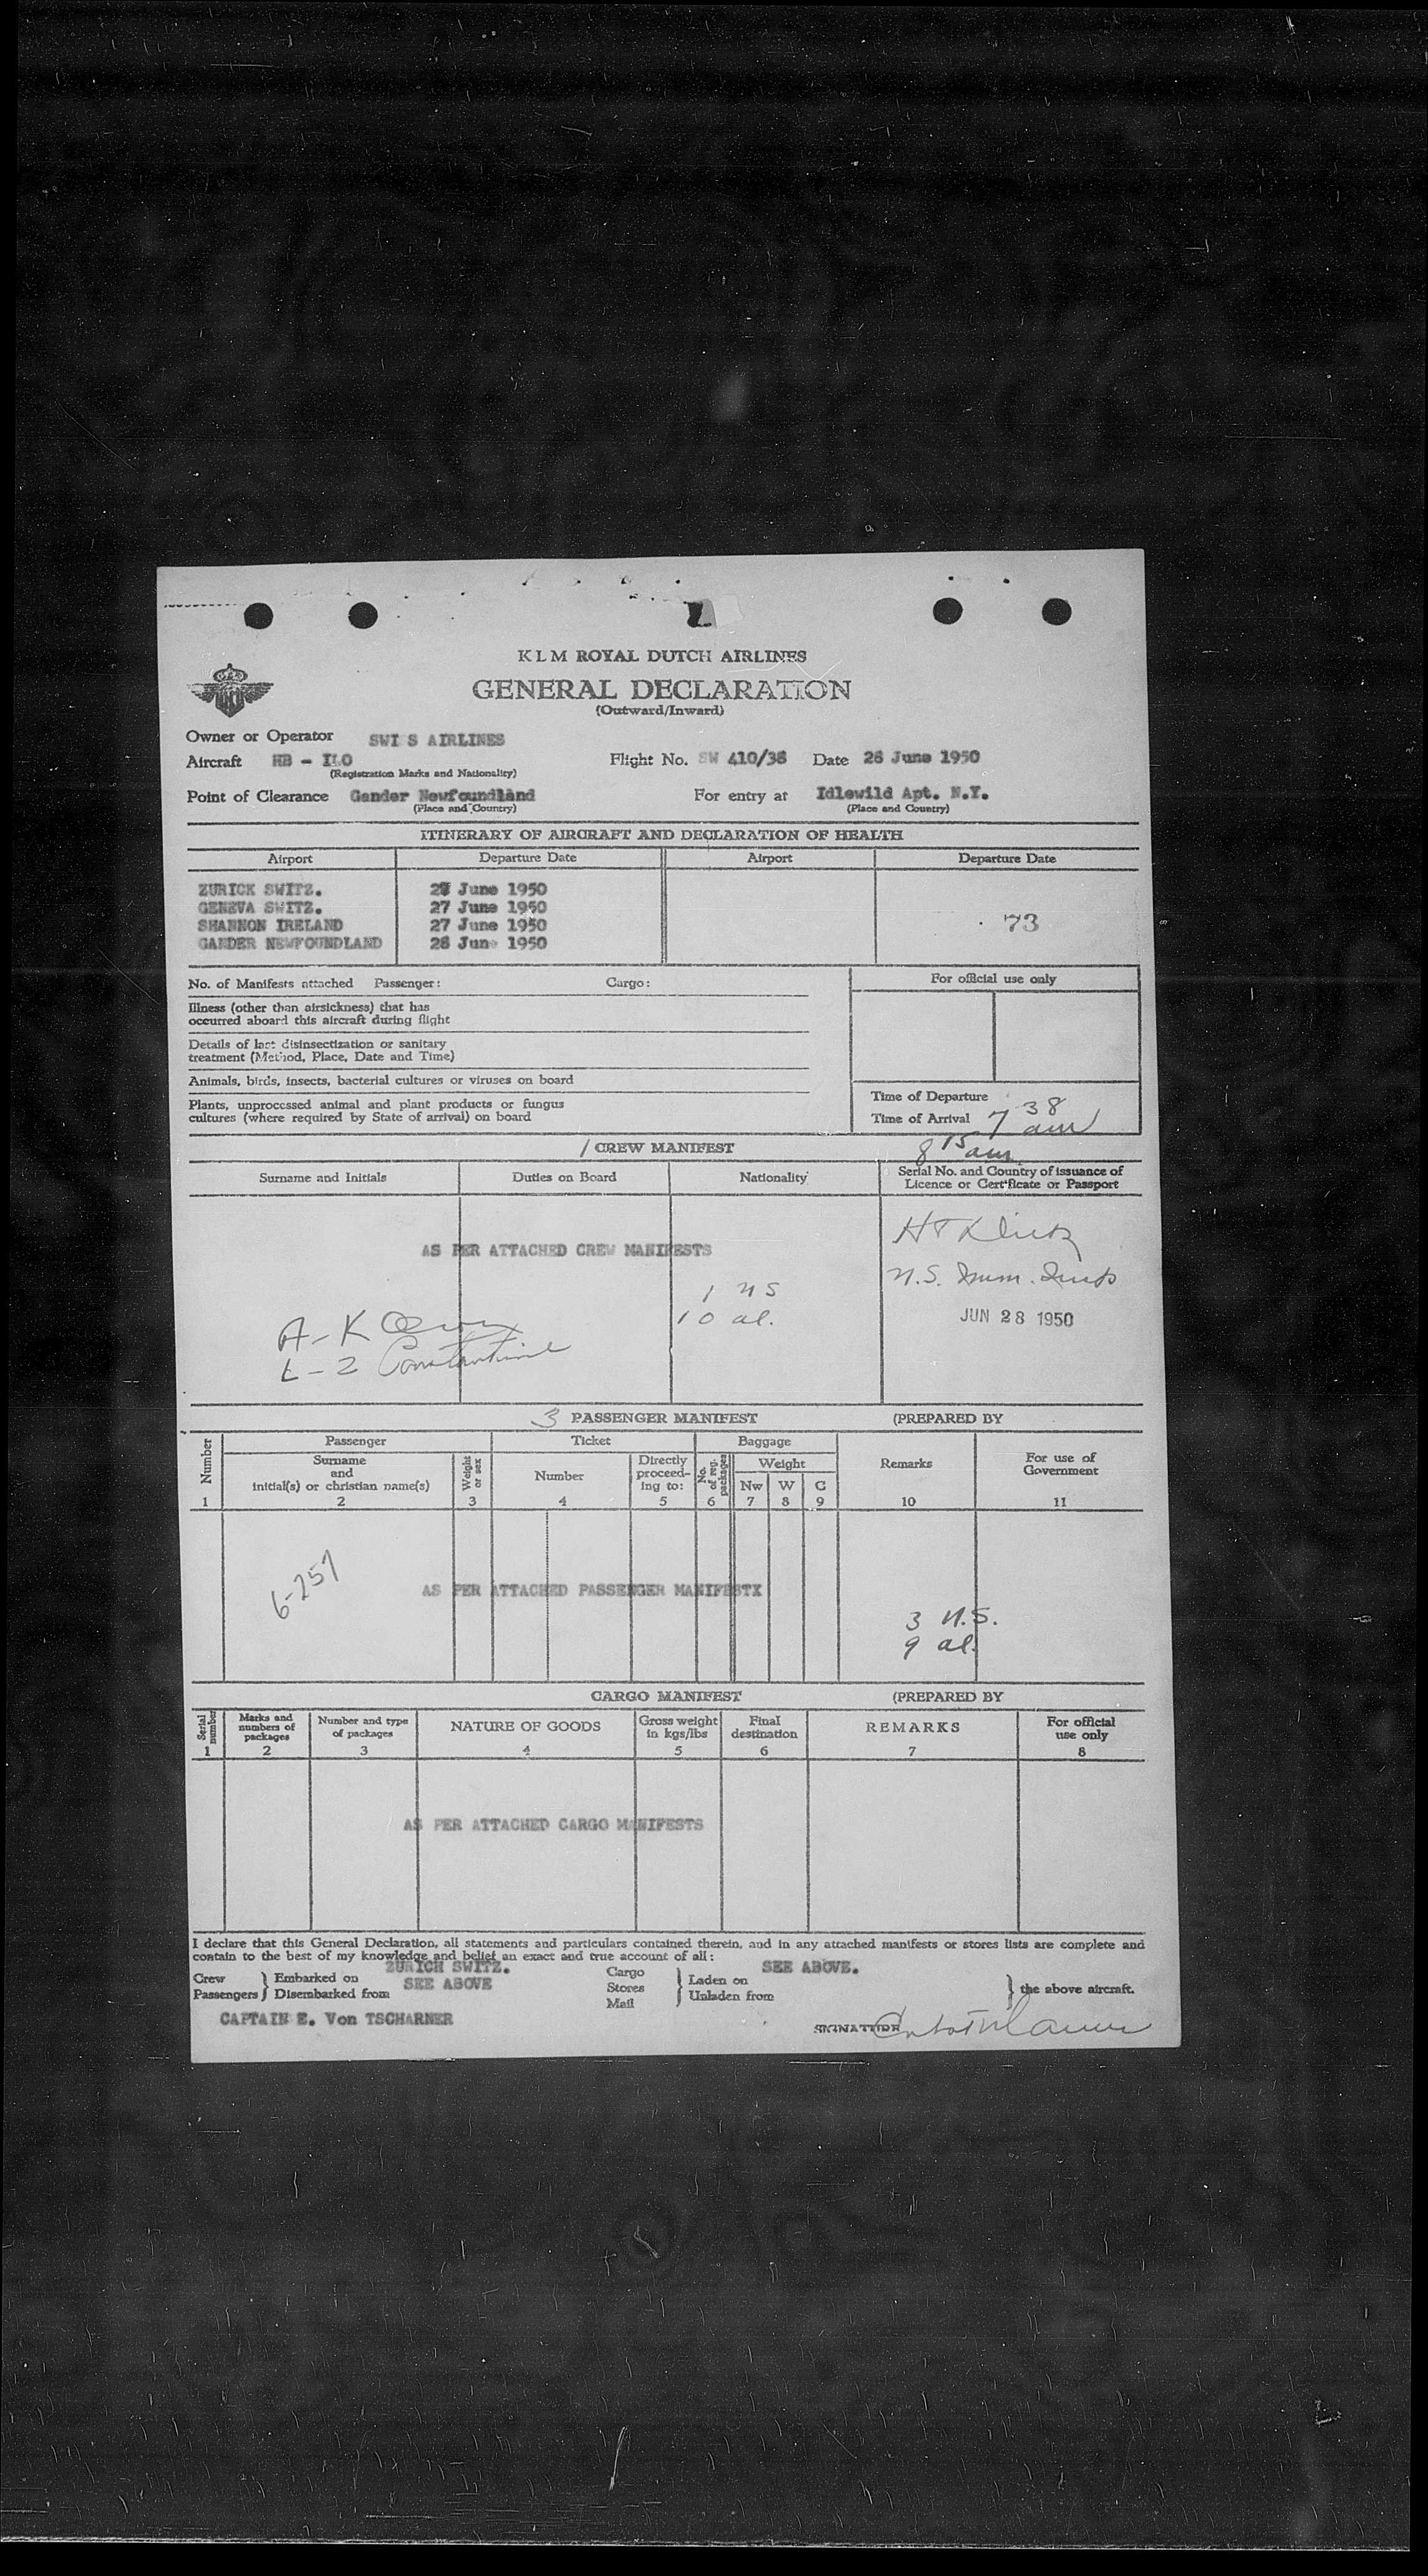 KLM ROYAL DUTCH AIRLINES
GENERAL DECLARATION
(Outward/Inward)
Owner or Operator SWI S AIRLINES
Aircraft HB - ILO Flight No. SW 410/38 Date 28 June 1950
(Registration Marks and Nationality)
Point of Clearance Gander Newfoundland For entry at Idlewild Apt. N.Y.
(Place and Country) (Place and Country)
ITINERARY OF AIRCRAFT AND DECLARATION OF HEALTH
Airport Departure Date Airport Departure Date
ZURICK SWITZ. 27 June 1950
GENEVA SWITZ. 27 June 1950
SHANNON IRELAND 27 June 1950 73
GANDER NEWFOUNDLAND 28 June 1950
No. of Manifests attached Passenger: Cargo: For official use only
Illness (other than airsickness) that has
occurred aboard this aircraft during flight
Details of last disinsectization or sanitary
treatment (Method, Place, Date and Time)
Animals, birds, insects, bacterial cultures or viruses on board
Plants, unprocessed animal and plant products or fungus
cultures (where required by State of arrival) on board
Time of Departure
Time of Arrival 7 38 am
8 15 am
/ CREW MANIFEST
Surname and Initials Duties on Board Nationality Serial No. and Country of issuance of
Licence or Certificate or Passport
AS PER ATTACHED CREW MANIFESTS
1 US
10 al.
U.S. Imm. Insp
JUN 28 1950
A-K
L-Z Constantine
3 PASSENGER MANIFEST (PREPARED BY
Number Passenger Ticket Baggage Remarks For use of
Government
Surname
and
initial(s) or christian name(s)
Weight
or sex
Number
Directly
proceed-
ing to:
No.
of reg.
packages
Weight
Nw W C
1 2 3 4 5 6 7 8 9 10 11
6-257
AS PER ATTACHED PASSENGER MANIFESTX
3 U.S.
9 al.
CARGO MANIFEST (PREPARED BY
Serial
number
Marks and
numbers of
packages
Number and type
of packages
NATURE OF GOODS
Gross weight
in kgs/lbs
Final
destination
REMARKS
For official
use only
1 2 3 4 5 6 7 8
AS PER ATTACHED CARGO MANIFESTS
I declare that this General Declaration, all statements and particulars contained therein, and in any attached manifests or stores lists are complete and
contain to the best of my knowledge and belief an exact and true account of all:
Crew
Passengers
Embarked on ZURICH SWITZ.
Disembarked from SEE ABOVE
Cargo
Stores
Mail
Laden on SEE ABOVE.
Unladen from
the above aircraft.
CAPTAIN E. Von TSCHARNER
SIGNATURE